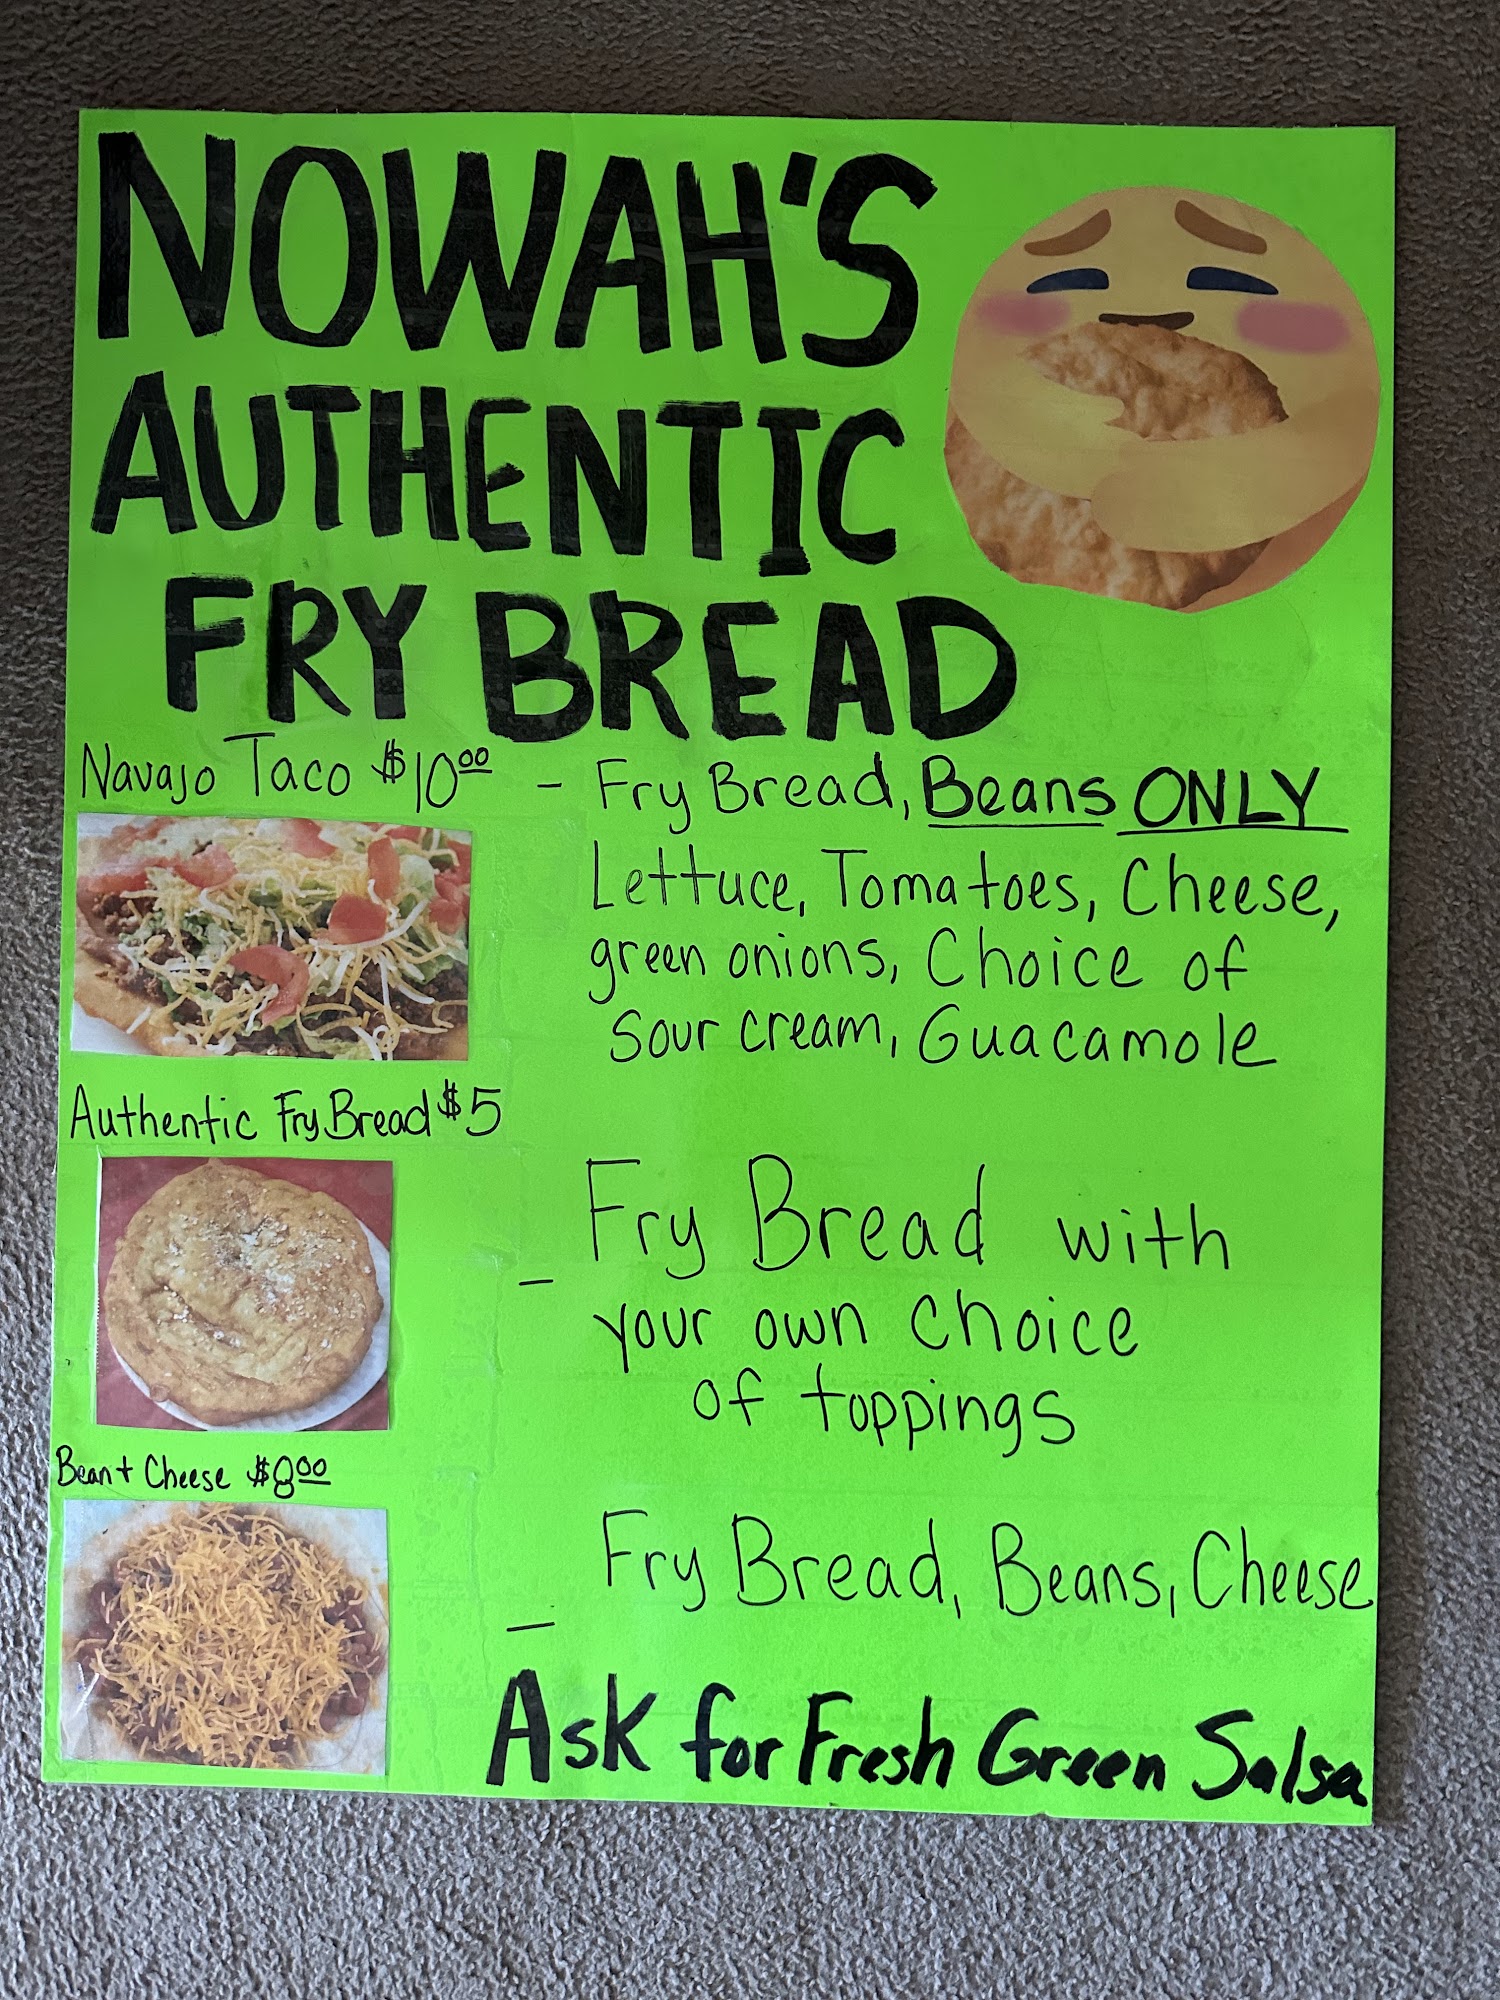 NOWAH'S
AUTHENTIC
FRY BREAD
Navajo Taco $10⁰⁰ - Fry Bread, Beans ONLY
Lettuce, Tomatoes, Cheese,
green onions, Choice of
Sour cream, Guacamole
Authentic Fry Bread $5
- Fry Bread with
your own choice
of toppings
Bean + Cheese $8⁰⁰
- Fry Bread, Beans, Cheese
Ask for Fresh Green Salsa